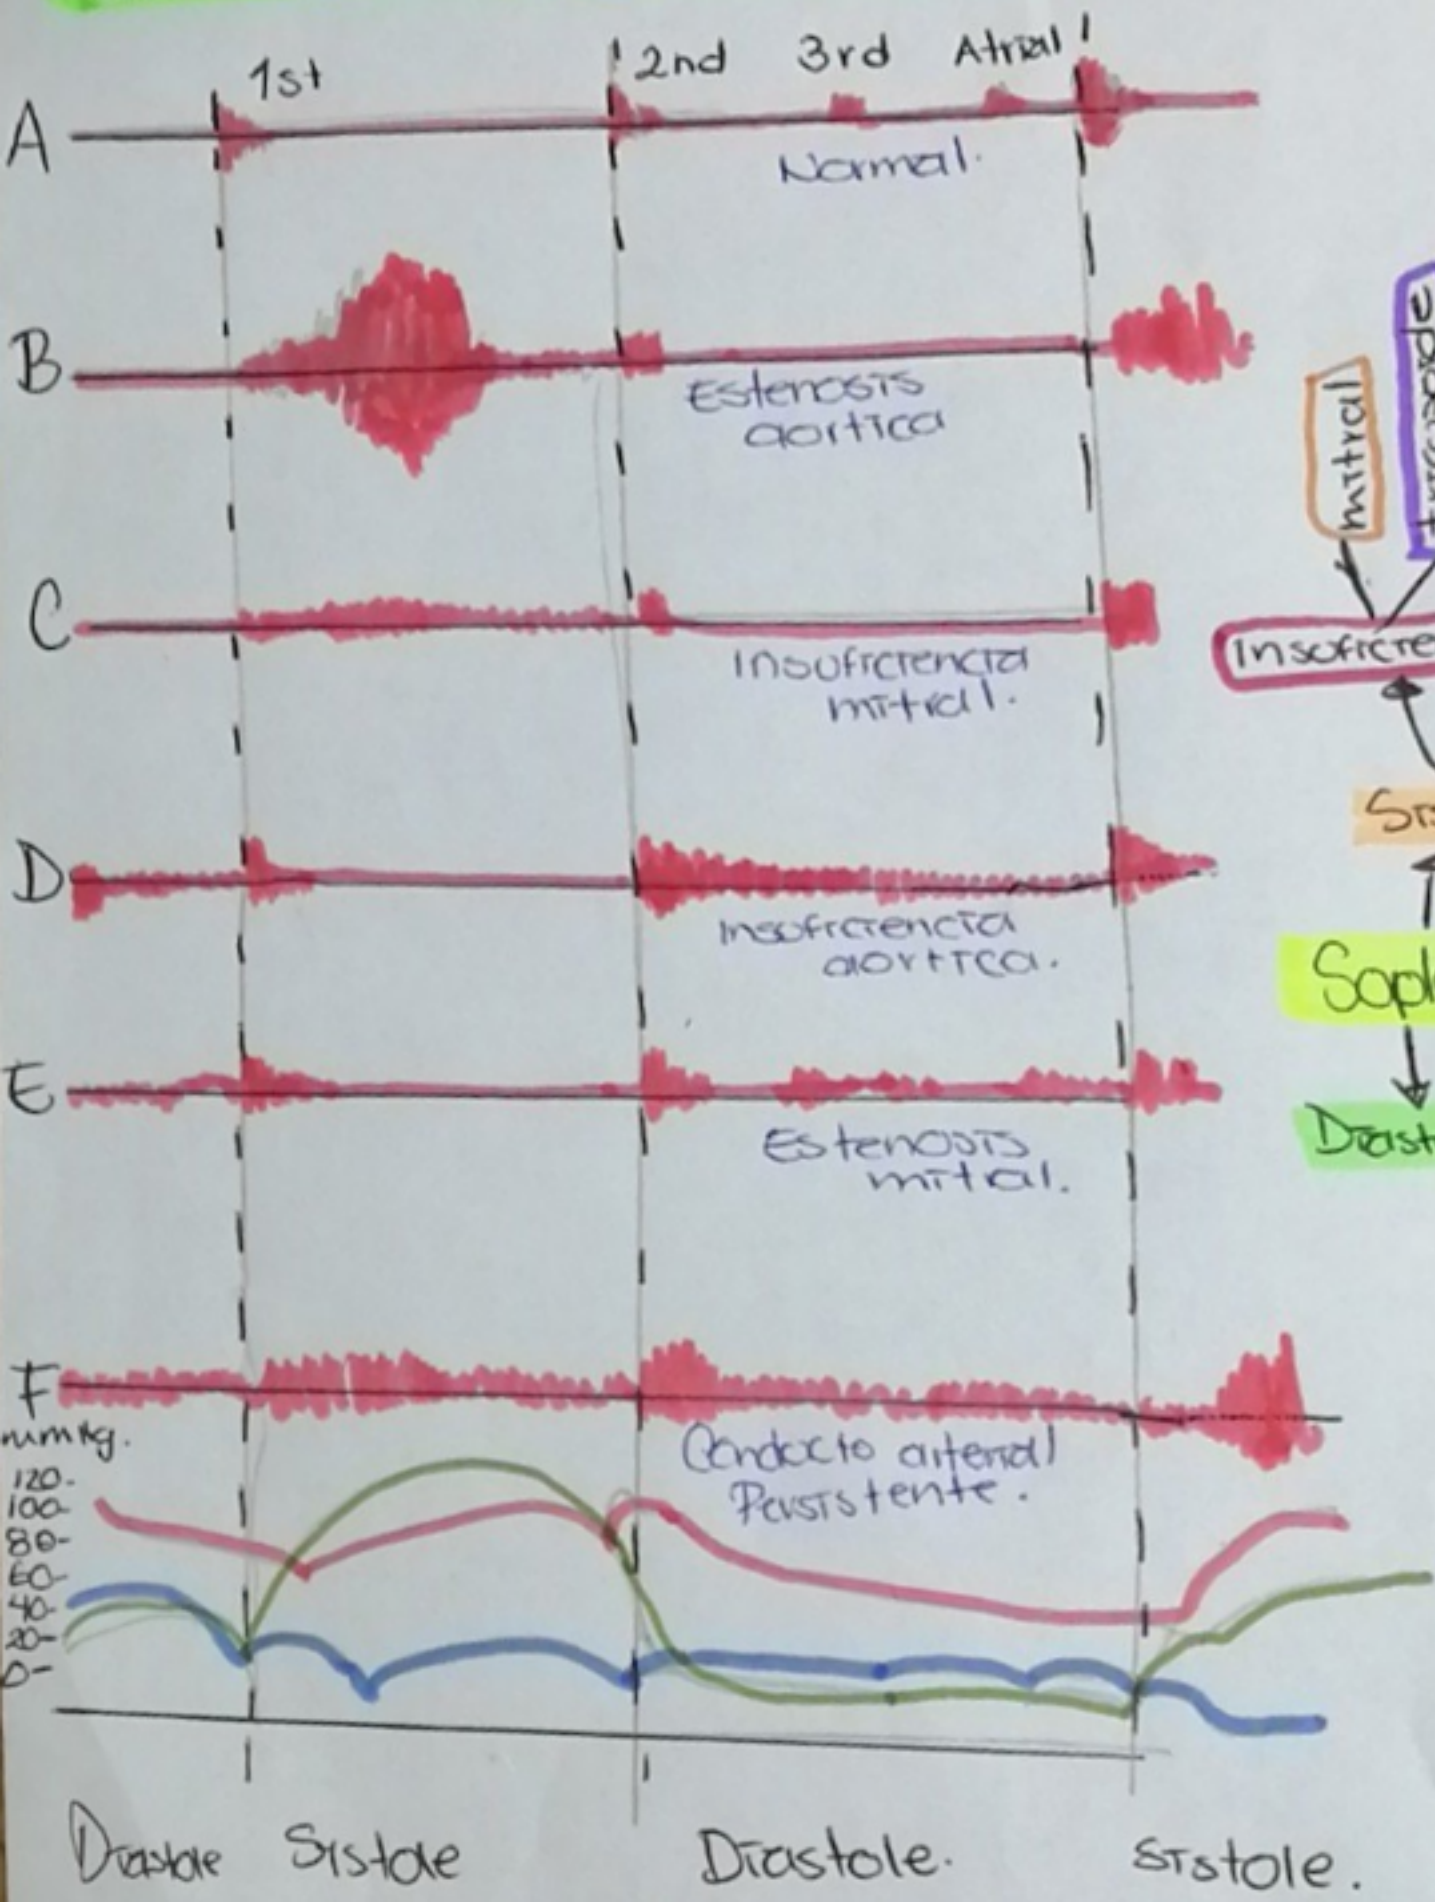 1st
2nd 3rd Atrial
A
Normal.
B
Estenosis
aortica
mitral
C
Insuficiencia
mitral.
D
Insuficiencia
aortica.
E
Estenosis
mitral.
F
Conducto arterial
Persistente.
mmHg.
120-
100-
80-
60-
40-
20-
0-
Diastole Sistole Diastole. Sistole.